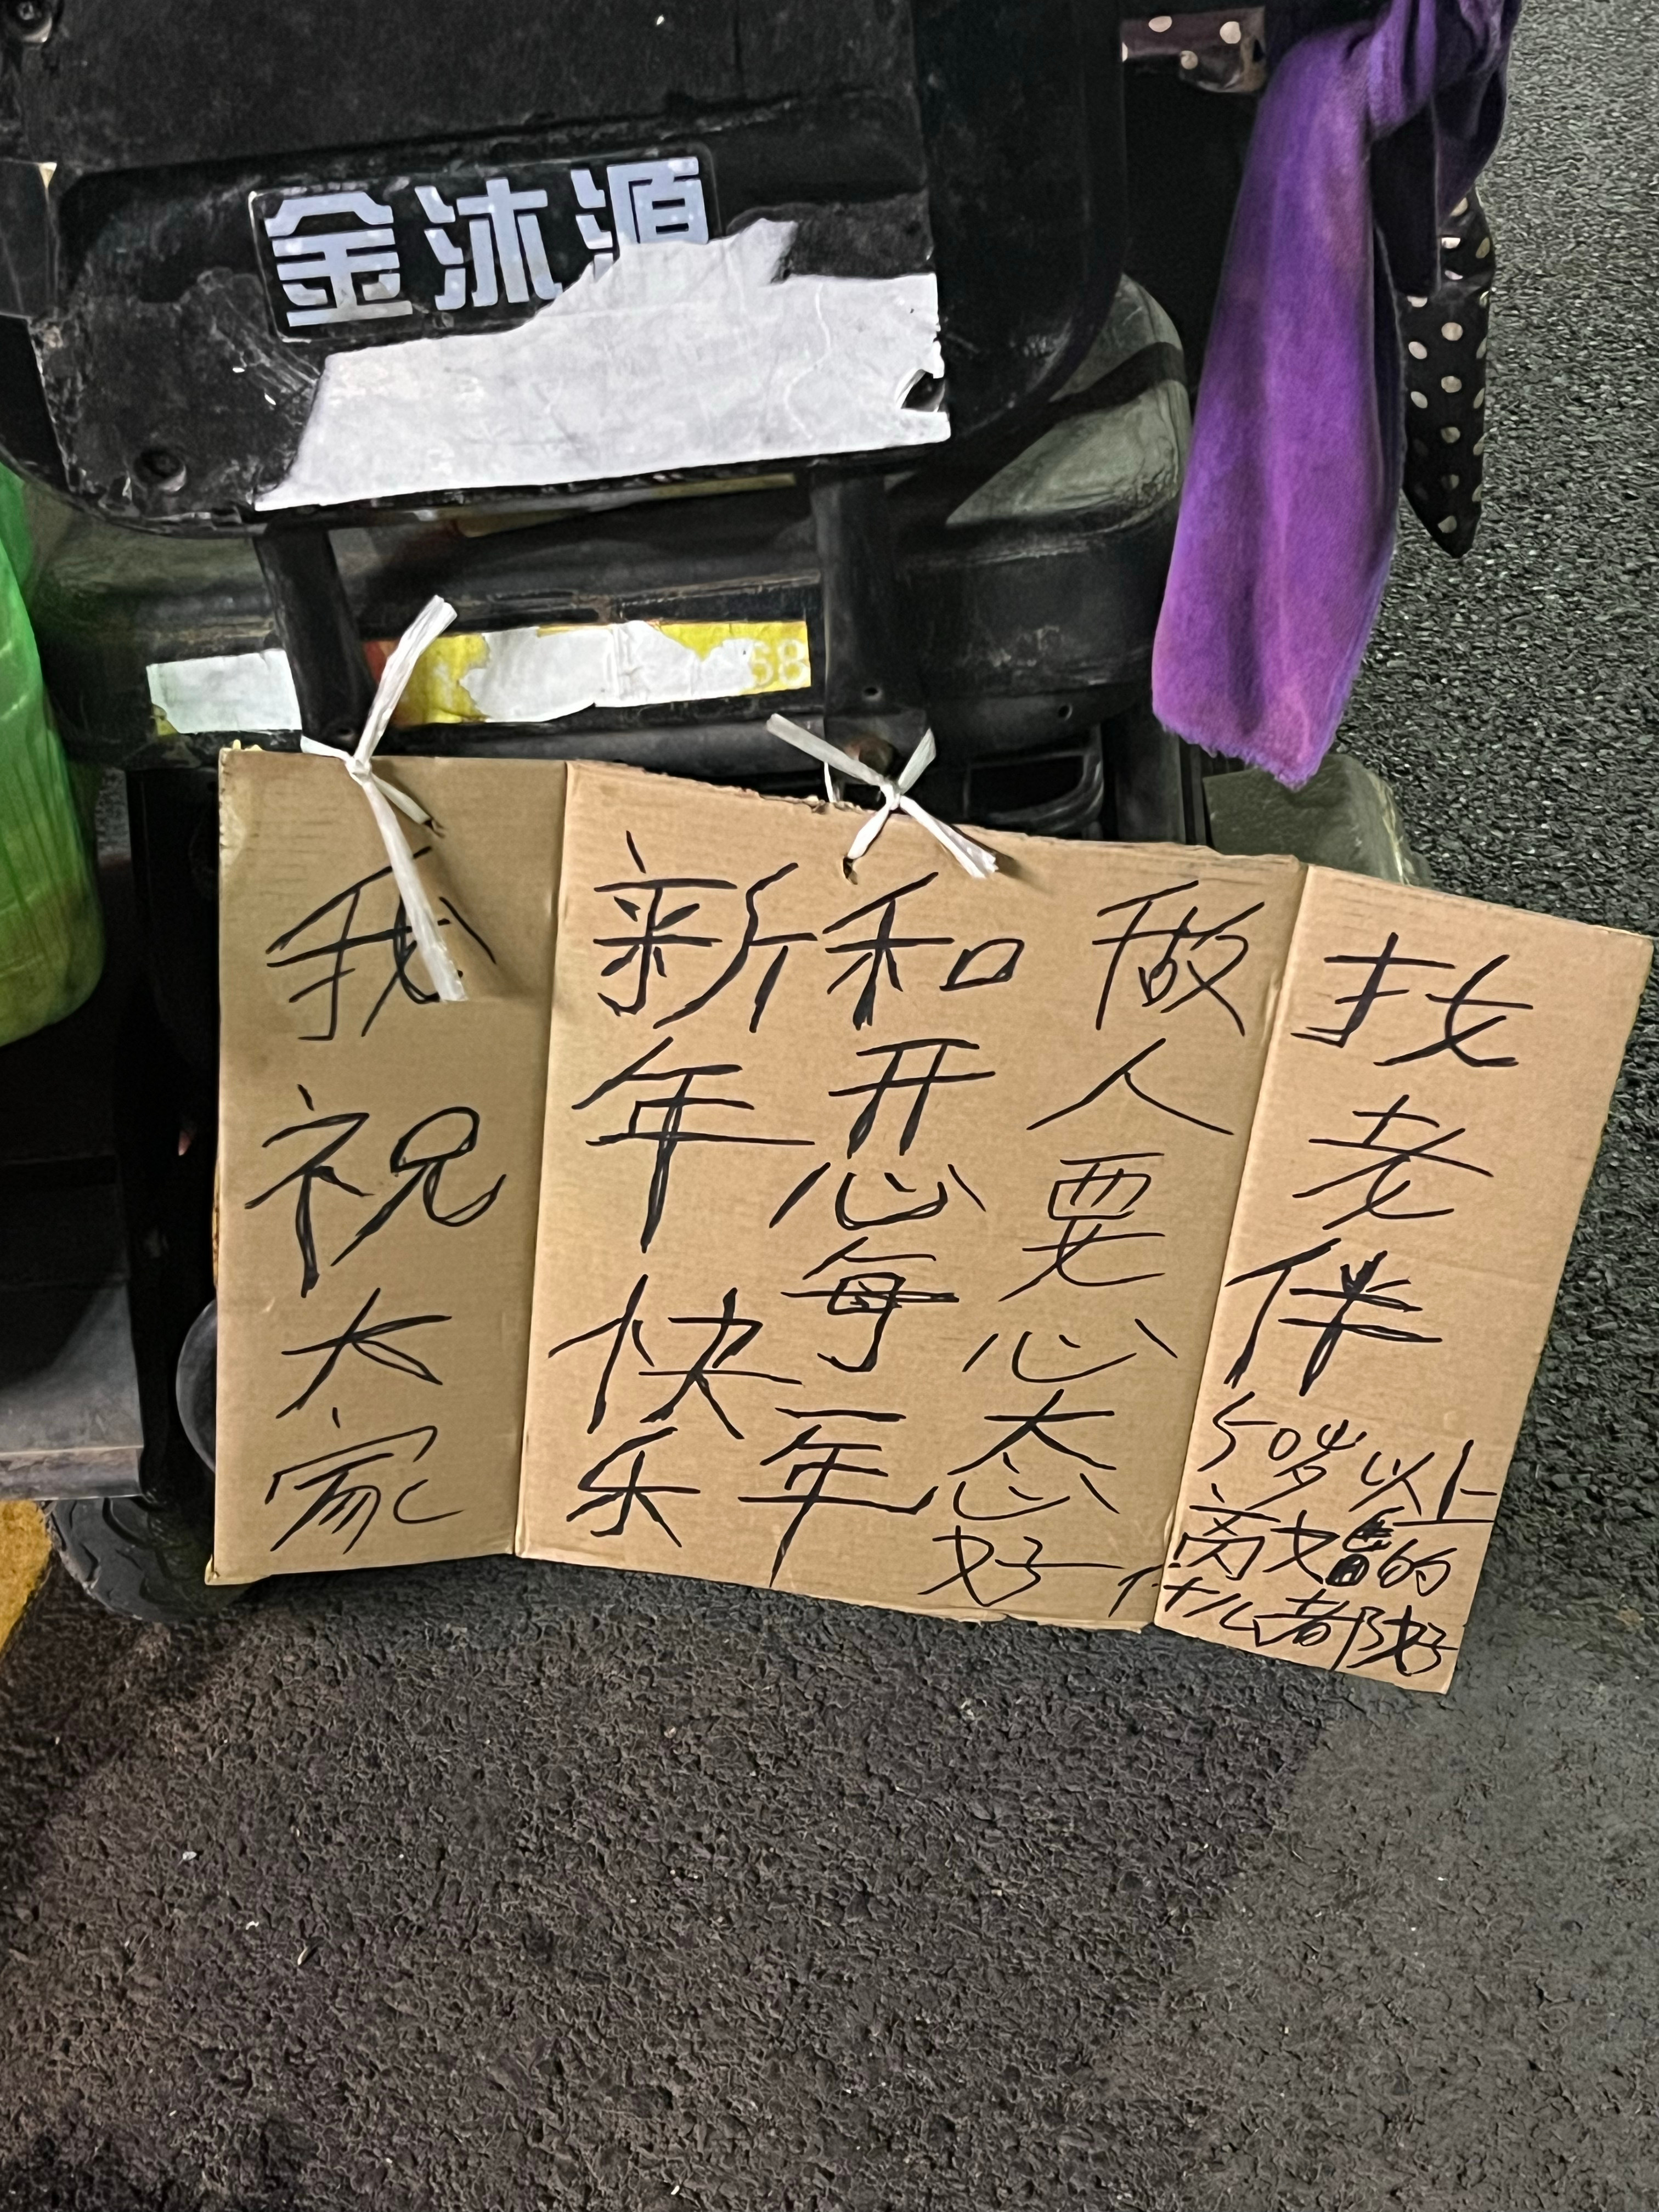 金沐源
68
我祝大家
新年快乐
和开心每一年
做人要心态好
找老伴
50岁以上
离婚的
什么都好